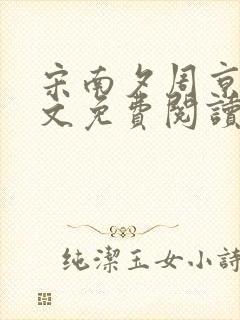 宋南夕周京
文免費閱讀
纯潔玉女小詩